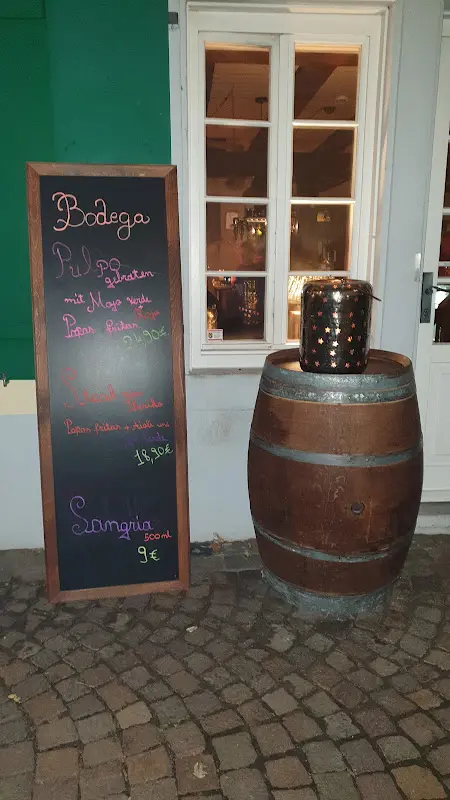 Bodega
Pulpo
gebraten
mit Mojo Verde
Rojo
Papas fritas
24,90€
Iberiko
Papas fritas + Aioli und
18,90€
Sangria
500ml
9€